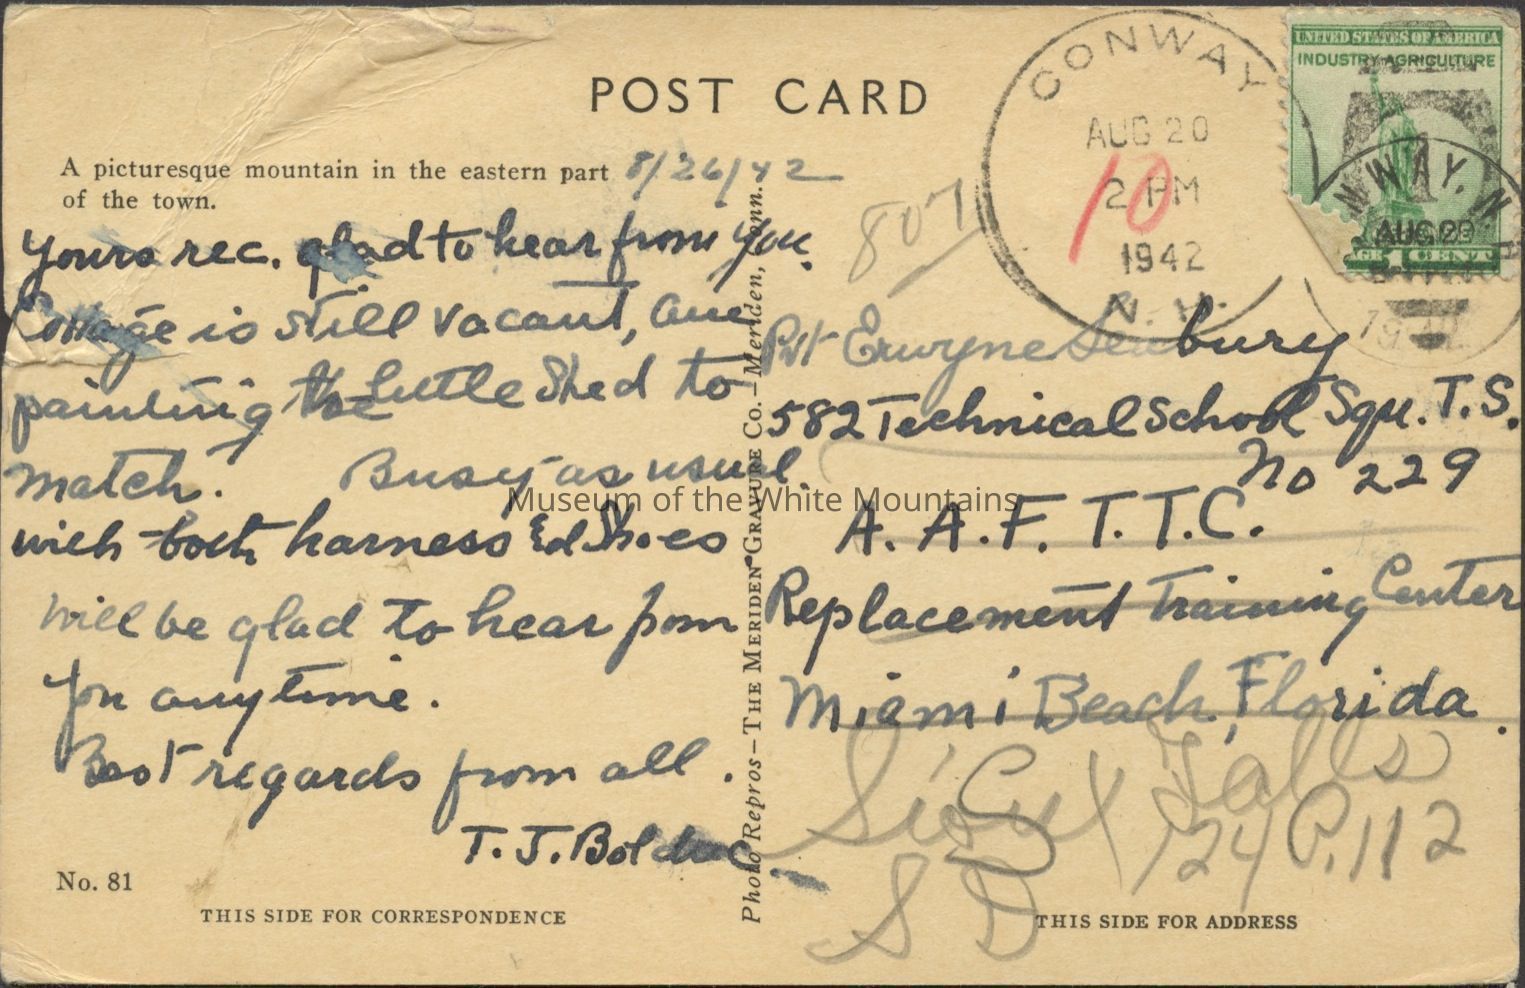 POST CARD
A picturesque mountain in the eastern part
of the town.
8/26/42
Yours rec. glad to hear from you.
Cottage is still vacant, am
painting the little shed to
match. Busy as usual.
with both harness & Shoes
will be glad to hear from
you anytime.
Best regards from all.
T. J. Bolduc
No. 81
THIS SIDE FOR CORRESPONDENCE
Photo Repros—THE MERIDEN GRAVURE CO.—Meriden, Conn.
Museum of the White Mountains
CONWAY
AUG 20
2 PM
1942
N. H.
10
807
UNITED STATES OF AMERICA
INDUSTRY AGRICULTURE
1 CENT
NWAY. N H
AUG 20
Pvt Erwyne Seabury
582 Technical School Squ. T.S.
No 229
A. A. F. T. T. C.
Replacement Training Center
Miami Beach, Florida.
Sioux Falls
SD
124 P. 112
THIS SIDE FOR ADDRESS